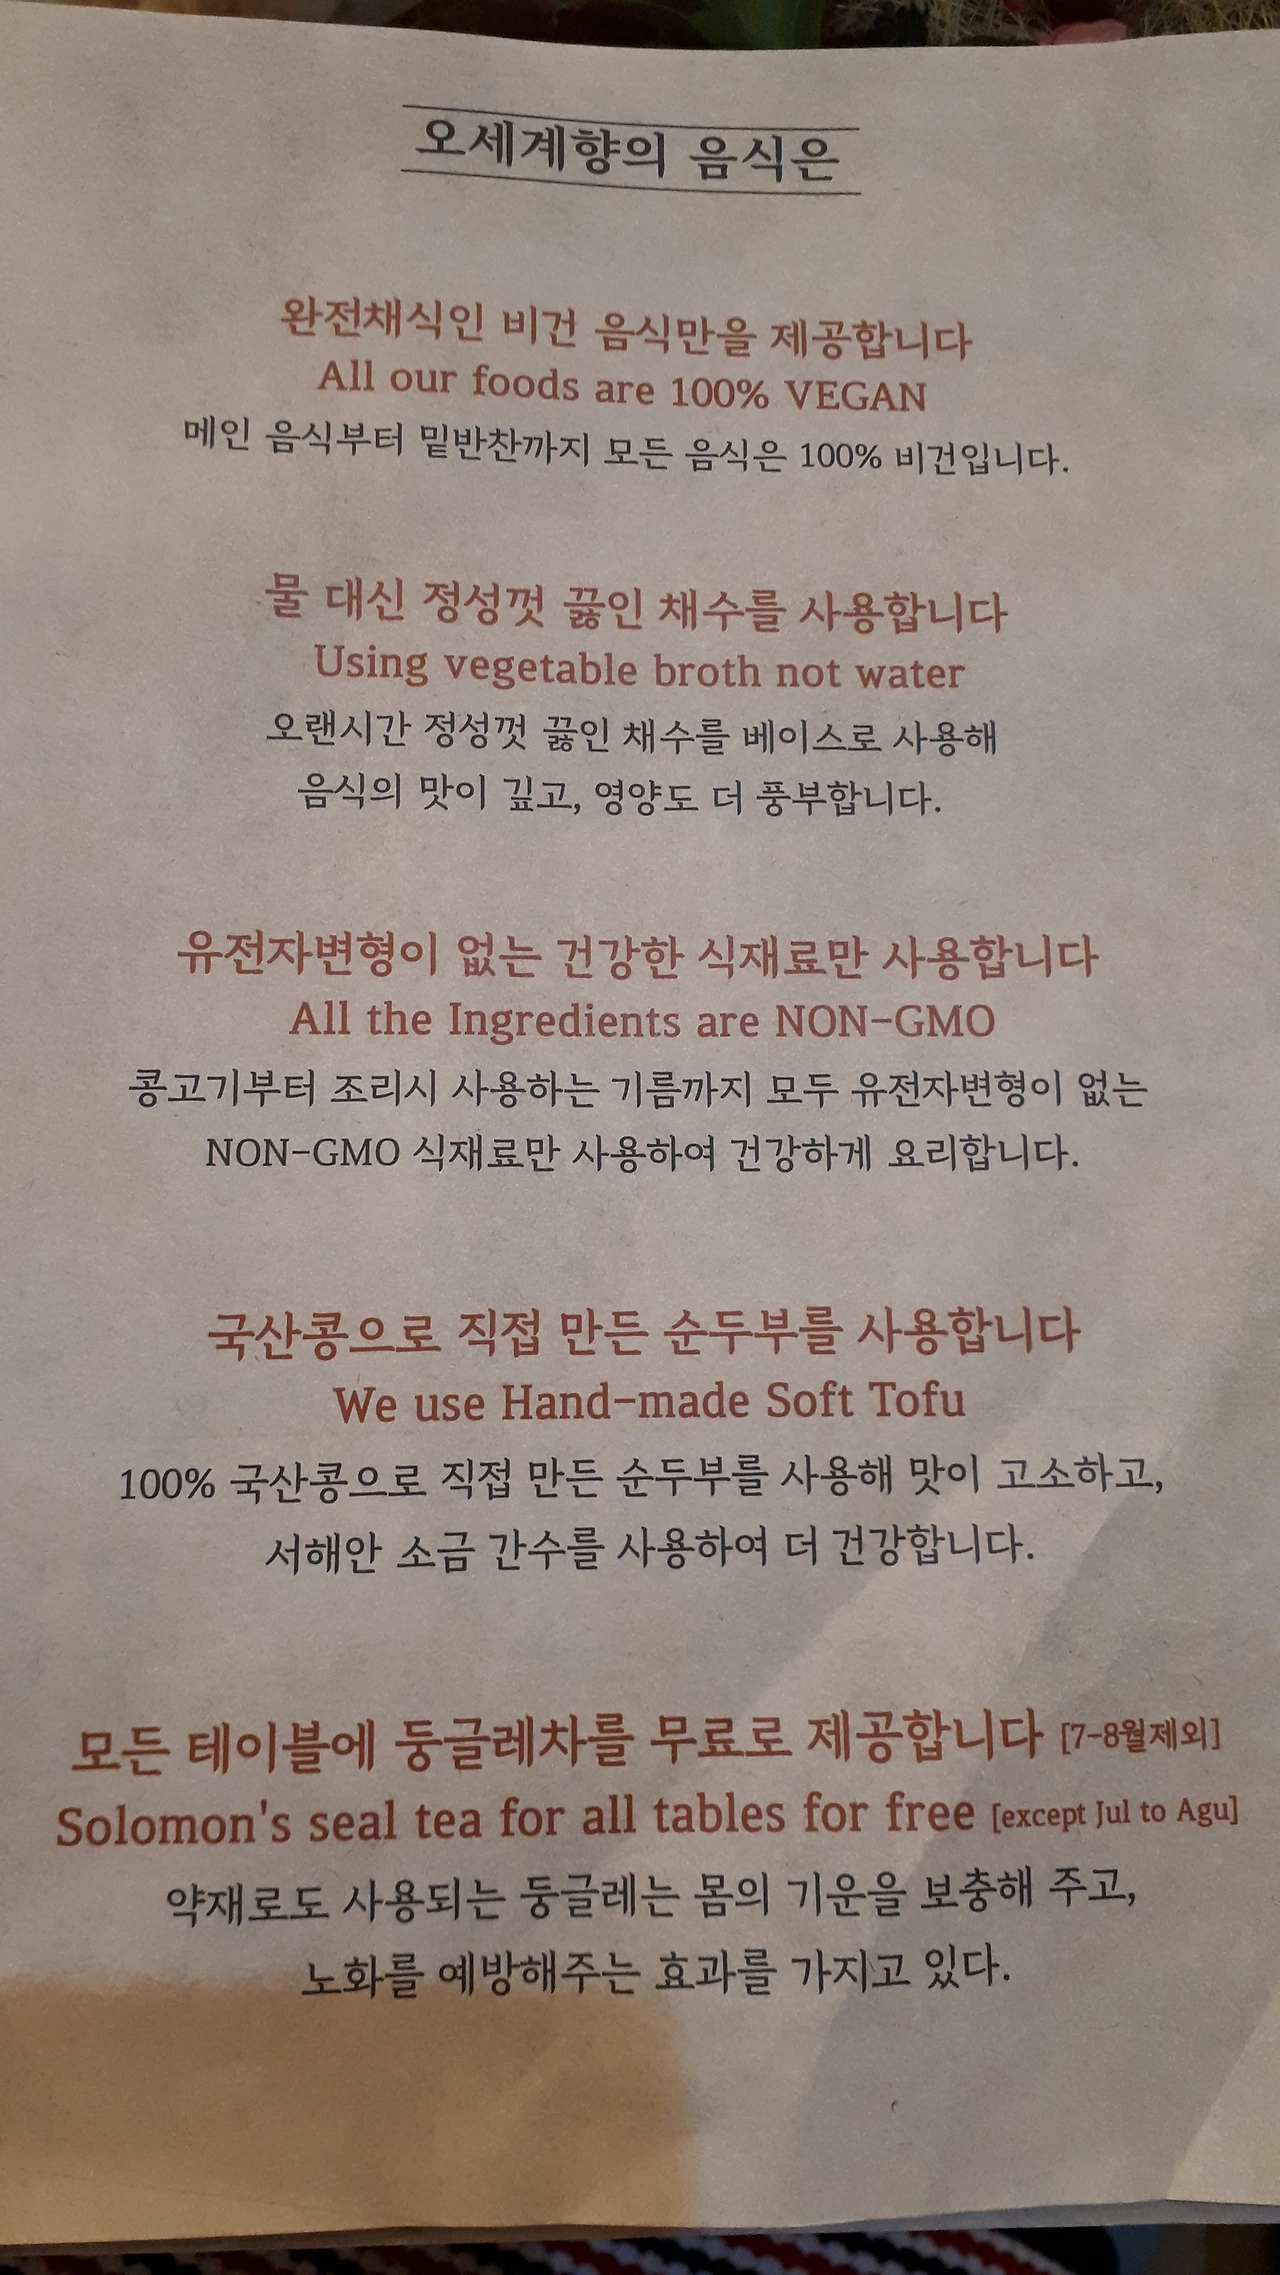 오세계향의 음식은
완전채식인 비건 음식만을 제공합니다
All our foods are 100% VEGAN
메인 음식부터 밑반찬까지 모든 음식은 100% 비건입니다.
물 대신 정성껏 끓인 채수를 사용합니다
Using vegetable broth not water
오랜시간 정성껏 끓인 채수를 베이스로 사용해
음식의 맛이 깊고, 영양도 더 풍부합니다.
유전자변형이 없는 건강한 식재료만 사용합니다
All the Ingredients are NON-GMO
콩고기부터 조리시 사용하는 기름까지 모두 유전자변형이 없는
NON-GMO 식재료만 사용하여 건강하게 요리합니다.
국산콩으로 직접 만든 순두부를 사용합니다
We use Hand-made Soft Tofu
100% 국산콩으로 직접 만든 순두부를 사용해 맛이 고소하고,
서해안 소금 간수를 사용하여 더 건강합니다.
모든 테이블에 둥글레차를 무료로 제공합니다 [7-8월제외]
Solomon's seal tea for all tables for free [except Jul to Agu]
약재로도 사용되는 둥글레는 몸의 기운을 보충해 주고,
노화를 예방해주는 효과를 가지고 있다.